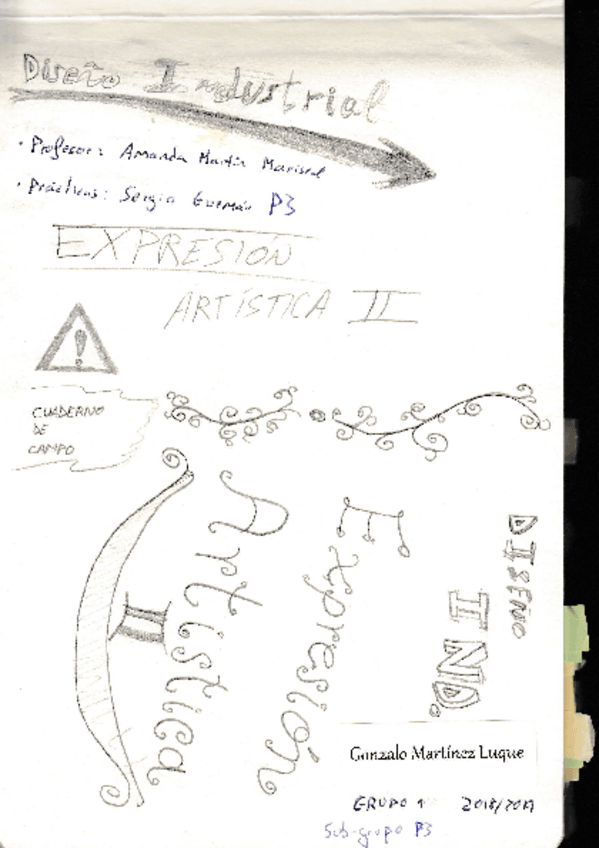 Diseño Industrial
· Profesora: Amanda Martín Mariscal
· Prácticas: Sergio Guzmán P3
EXPRESIÓN
ARTÍSTICA II
!
CUADERNO
DE
CAMPO
DISEÑO
IND.
Expresión
Artística
II
Gonzalo Martínez Luque
GRUPO 1 2018/2019
Sub-grupo P3